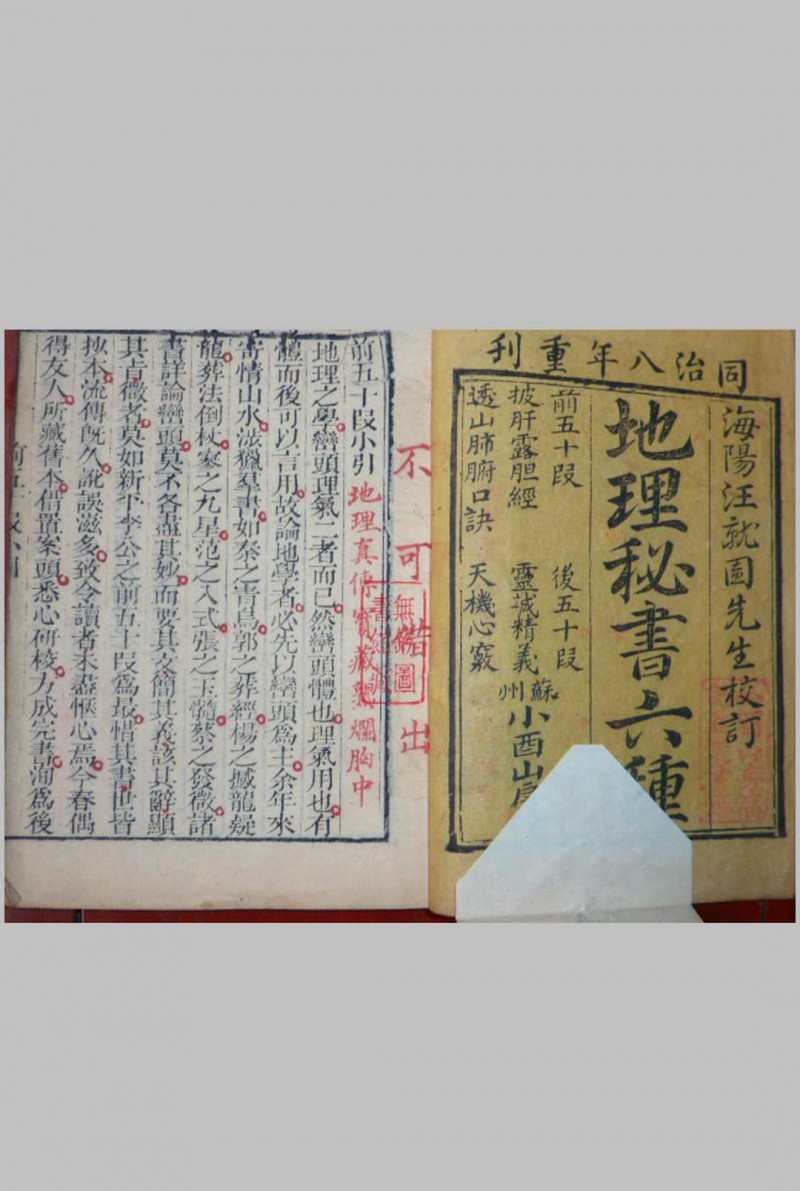 同治八年重刊
海陽汪就園先生校訂
地理秘書六種
前五十段 後五十段
披肝露胆經 靈城精義
透山肺腑口訣 天機心竅
蘇州小酉山房
不可借出
無錯圖
前五十段小引
地理真傳寶藏熟爛胸中
地理之學巒頭理氣二者而已然巒頭體也理氣用也有
體而後可以言用故論地學者必先以巒頭為主余年來
寄情山水泛獵羣書如秦之青烏郭之葬經楊之撼龍疑
龍葬法倒杖寥之九星范之入式張之玉髓蔡之發微諸
書詳論巒頭莫不各盡其妙而要其文簡其義該其辭顯
其旨微者莫如新平李公之前五十段爲最惜其書世皆
抄本流傳旣久訛誤滋多致令讀者未盡愜心焉今春偶
得友人所藏舊本借置案頭悉心研校乃成完書洵爲後
前五十段小引